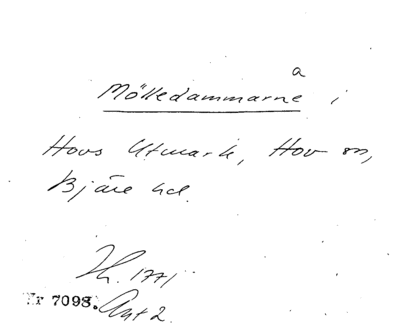 a
Mölledammarne i
Hovs Utmark, Hov sn,
Bjäre hd.
Th. 1771
Nr 7098. Ant 2.